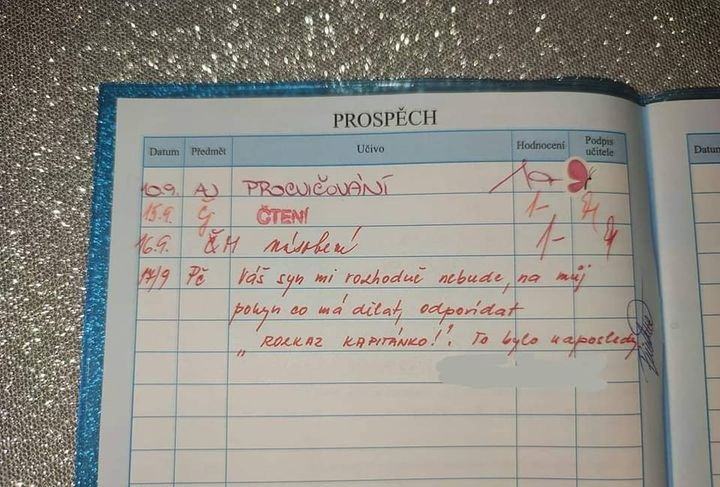 PROSPĚCH
Datum Předmět Učivo Hodnocení Podpis učitele Datum
10.9. AJ PROCVIČOVÁNÍ 1a
15.9. Čj ČTENÍ 1-
16.9. ČM násobení 1-
17/9 Pč Váš syn mi rozhodně nebude, na můj
pokyn co má dělat, odpovídat
„ROZKAZ KAPITÁNKO!". To bylo naposledy